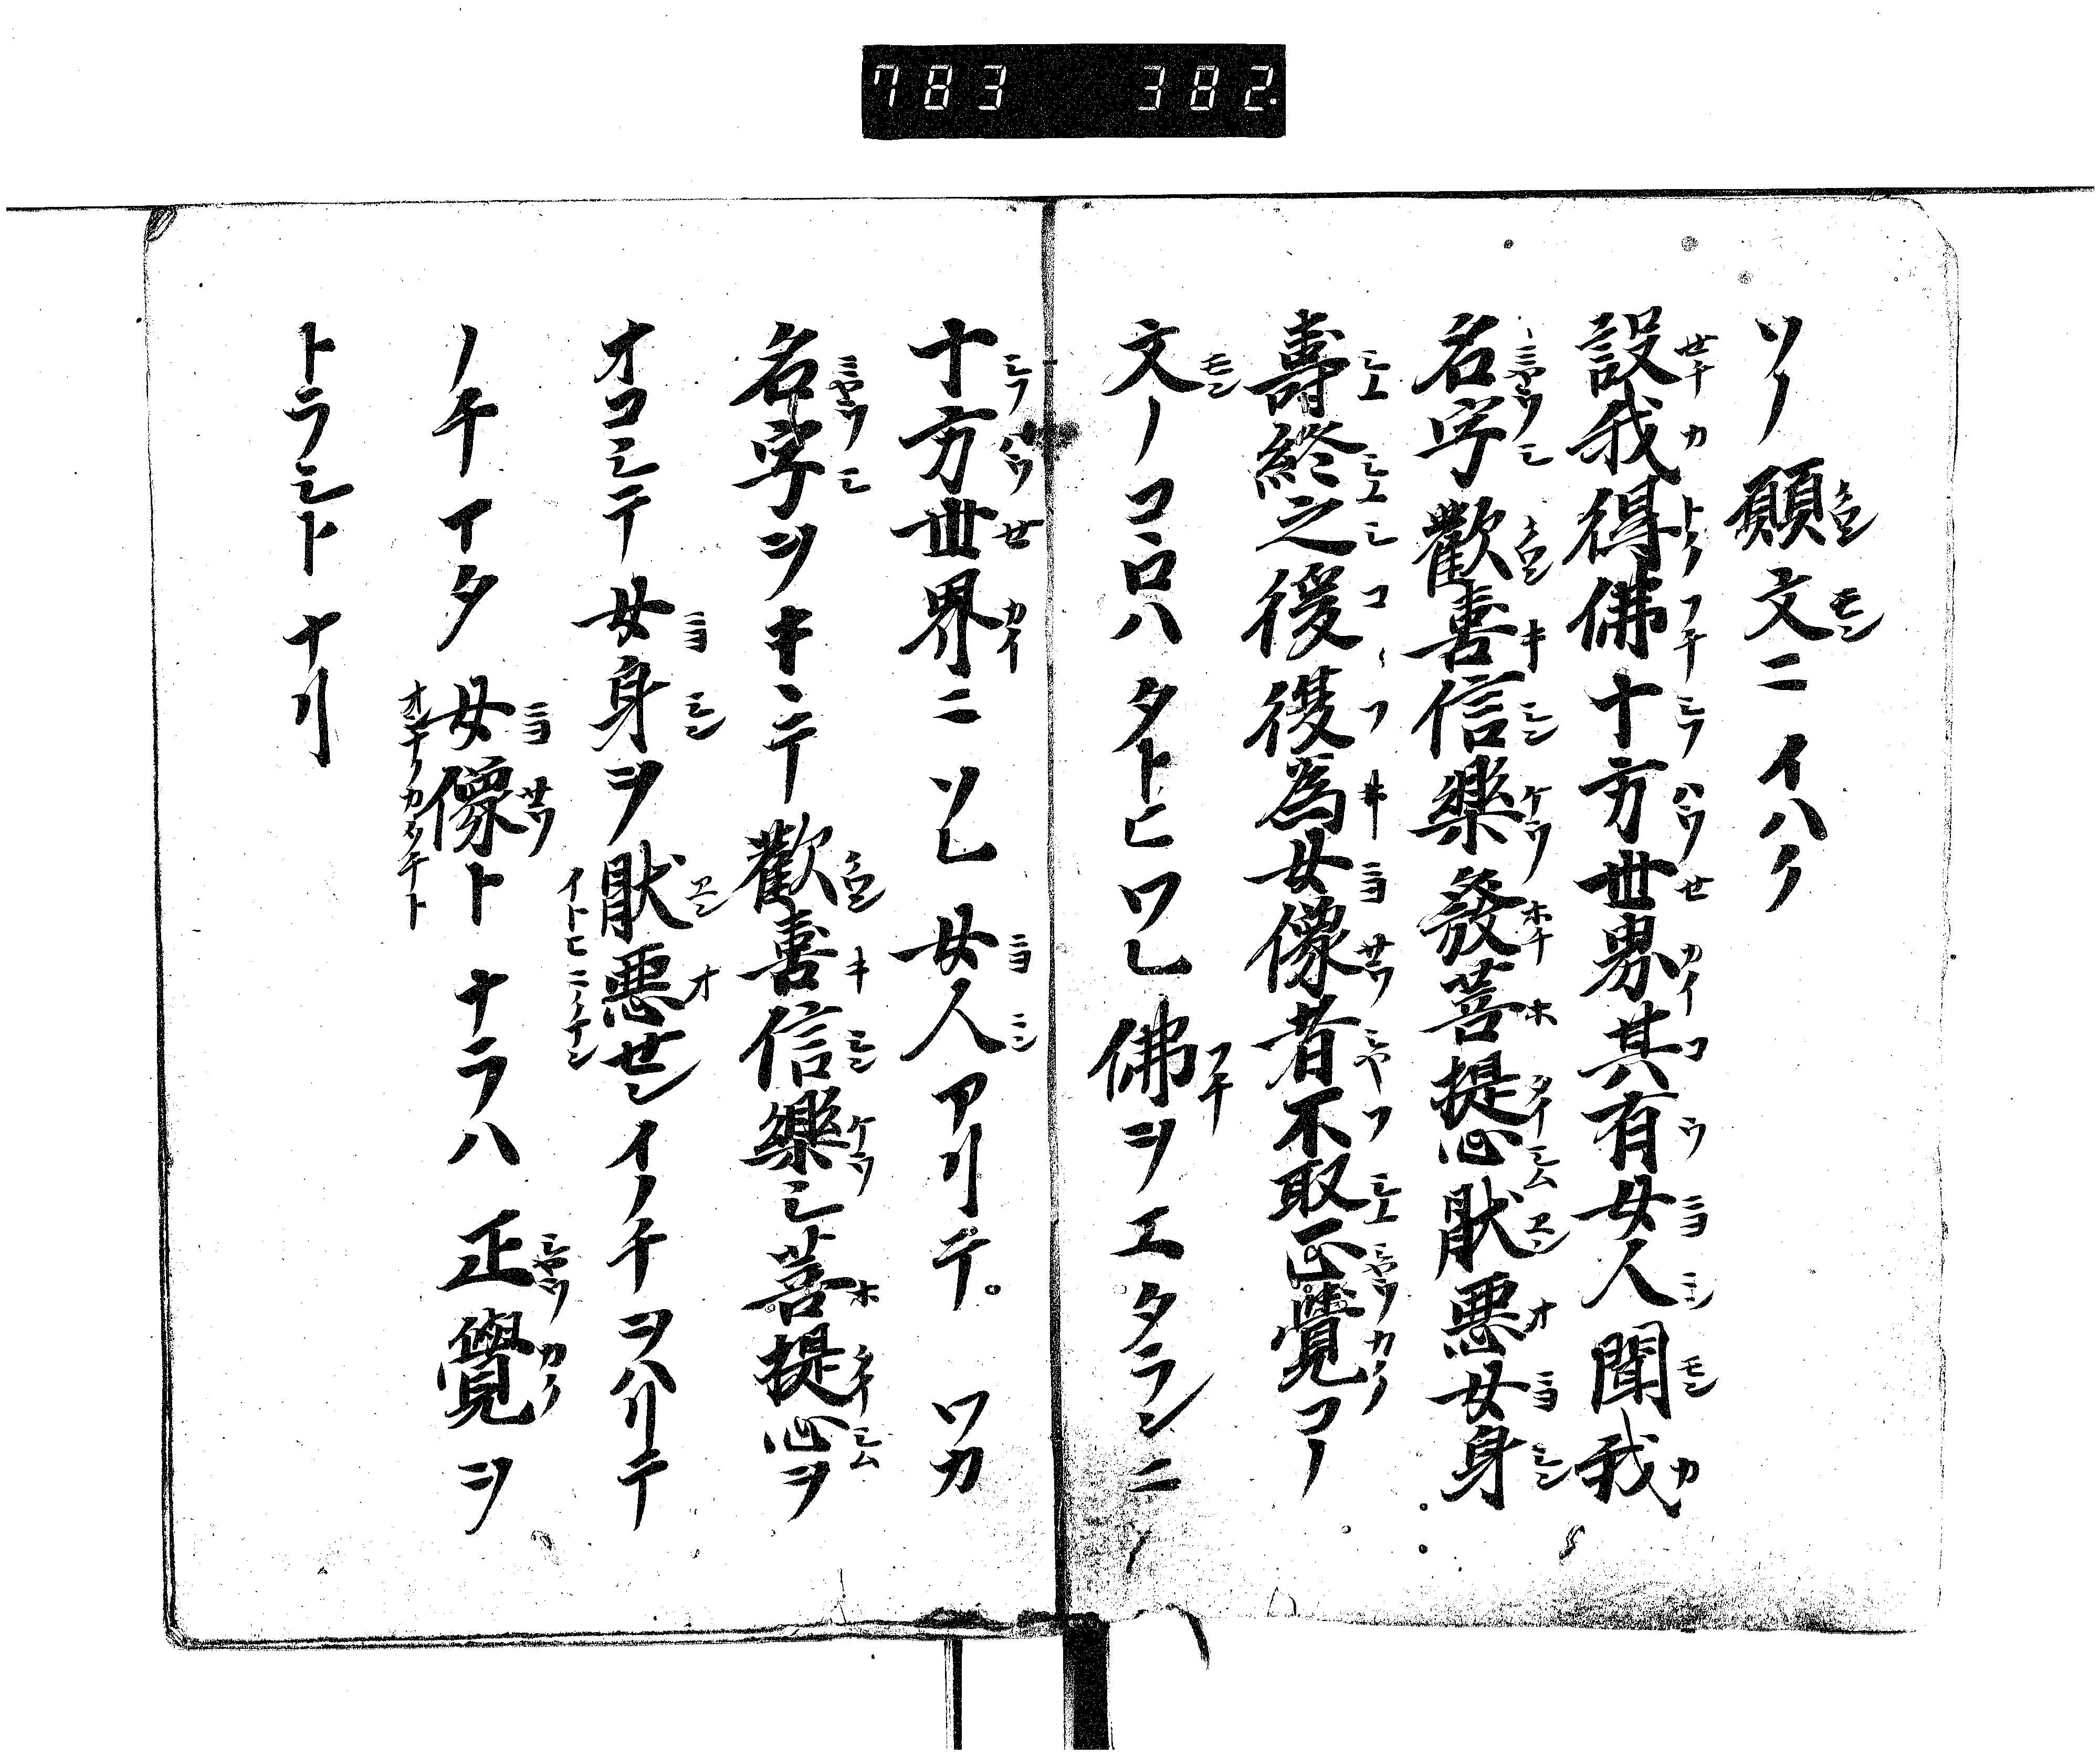 783 382.
ソノ願文ニイハク
設我得佛十方世界其有女人聞我
名字歡喜信樂發菩提心猒惡女身
壽終之後復爲女像者不取正覺コノ
文ノコヽロハタトヒワレ佛ヲエタランニ
十方世界ニソレ女人アリテ。ワカ
名字ヲキヽテ歡喜信樂シ菩提心ヲ
オコシテ女身ヲ猒惡センイノチヲハリテ
ノチイタ女像トナラハ正覺ヲ
トラシトナリ